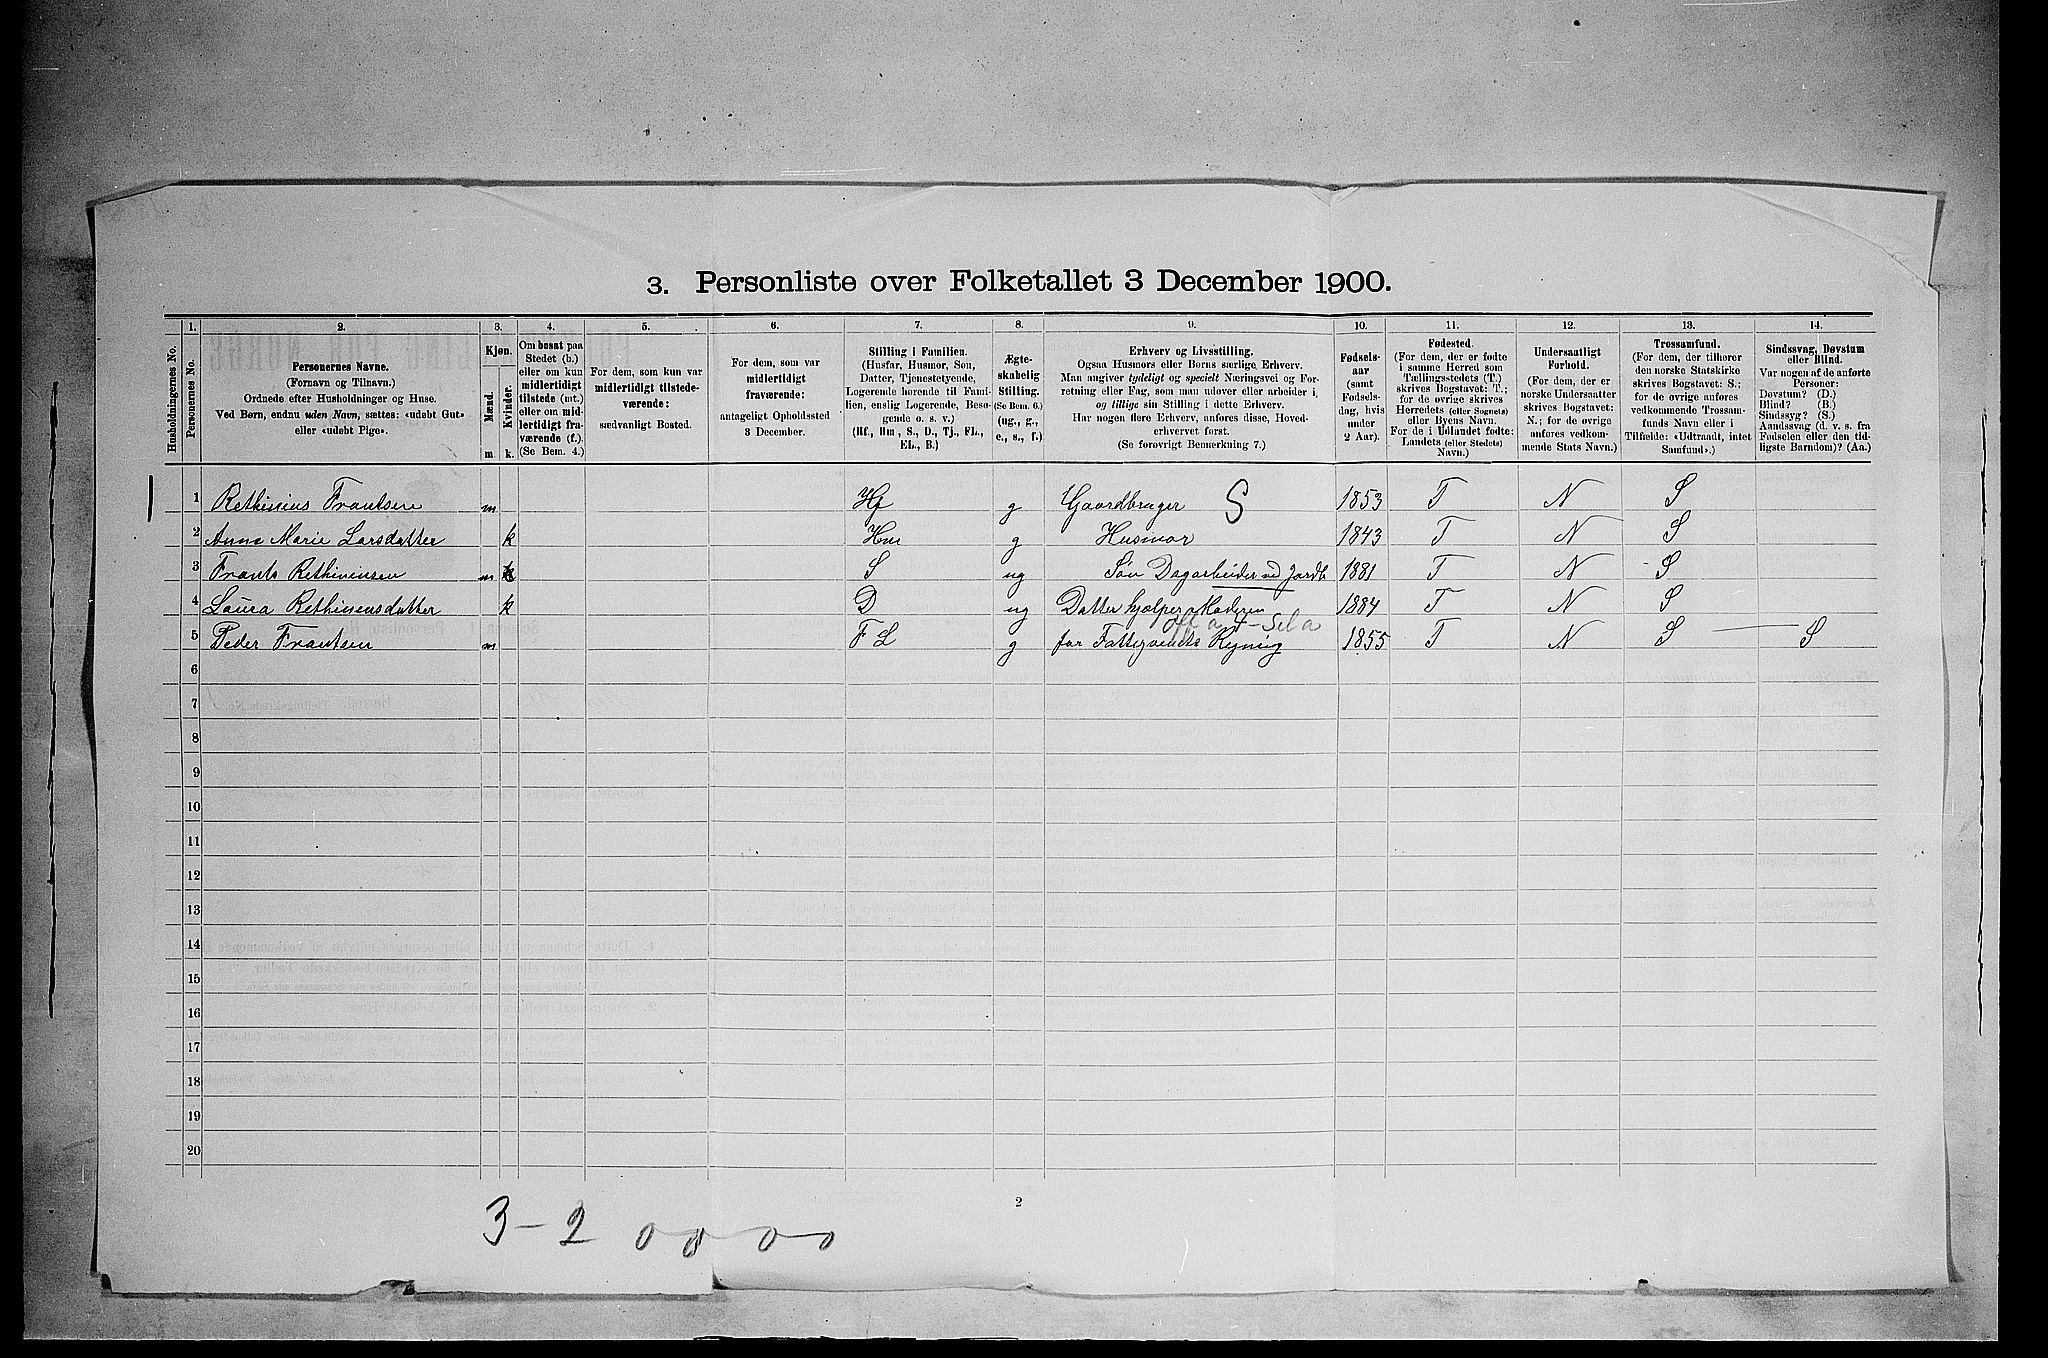 3. Personliste over Folketallet 3 December 1900.
1. 2. 3. 4. 5. 6. 7. 8. 9. 10. 11. 12. 13. 14.
Husholdningernes No.
Personernes No.
Personernes Navne.
(Fornavn og Tilnavn.)
Ordnede efter Husholdninger og Huse.
Ved Børn, endnu uden Navn, sættes: «udøbt Gut»
eller «udøbt Pige».
Kjøn.
Mænd.
Kvinder.
m k.
Om bosat paa
Stedet (b.)
eller om kun
midlertidigt
tilstede (mt.)
eller om mid-
lertidigt fra-
værende (f.).
(Se Bem. 4.)
For dem, som kun var
midlertidigt tilstede-
værende:
sædvanligt Bosted.
For dem, som var
midlertidigt
fraværende:
antageligt Opholdssted
3 December.
Stilling i Familien.
(Husfar, Husmor, Søn,
Datter, Tjenestetyende,
Logerende hørende til Fami-
lien, enslig Logerende, Besø-
gende o. s. v.)
(Hf., Hm., S., D., Tj., FL.,
EL., B.)
Ægte-
skabelig
Stilling.
(Se Bem. 6.)
(ug., g.,
e., s., f.)
Erhverv og Livsstilling.
Ogsaa Husmors eller Børns særlige Erhverv.
Man angiver tydeligt og specielt Næringsvei og For-
retning eller Fag, som man udøver eller arbeider i,
og tillige sin Stilling i dette Erhverv.
Har nogen flere Erhverv, anføres disse, Hoved-
erhvervet først.
(Se forøvrigt Bemerkning 7.)
Fødsels-
aar
(samt
Fødsels-
dag, hvis
under
2 Aar).
Fødested.
(For dem, der er fødte
i samme Herred som
Tællingsstedets (T.)
skrives Bogstavet: T.;
for de øvrige skrives
Herredets (eller Sognets)
eller Byens Navn.
For de i Udlandet fødte:
Landets (eller Stedets)
Navn.)
Undersaatligt
Forhold.
(For dem, der er
norske Undersaatter
skrives Bogstavet:
N.; for de øvrige
anføres vedkom-
mende Stats Navn.)
Trossamfund.
(For dem, der tilhører
den norske Statskirke
skrives Bogstavet: S.;
for de øvrige anføres
vedkommende Trossam-
funds Navn eller i
Tilfælde: «Udtraadt, intet
Samfund».)
Sindssvag, Døvstum
eller Blind.
Var nogen af de anførte
Personer:
Døvstum? (D.)
Blind? (B.)
Sindssyg? (S.)
Aandssvag (d. v. s. fra
Fødselen eller den tid-
ligste Barndom)? (Aa.)
1 Rethinius Frantsen m Hf g Gaardbruger S 1853 T N S
2 Anne Marie Larsdatter k Hm g Husmor 1843 T N S
3 Frants Rethiniusen m S ug Søn Dagarbeider ved Jordb 1881 T N S
4 Laura Rethiniusdatter k D ug Datter hjælper Moderen 1884 T N S
5 Peder Frantsen m FL g for Fattigvæsents Regning 1855 T N S S
6
7
8
9
10
11
12
13
14
15
16
17
18
19
20
2
3-2 0 0 0 0